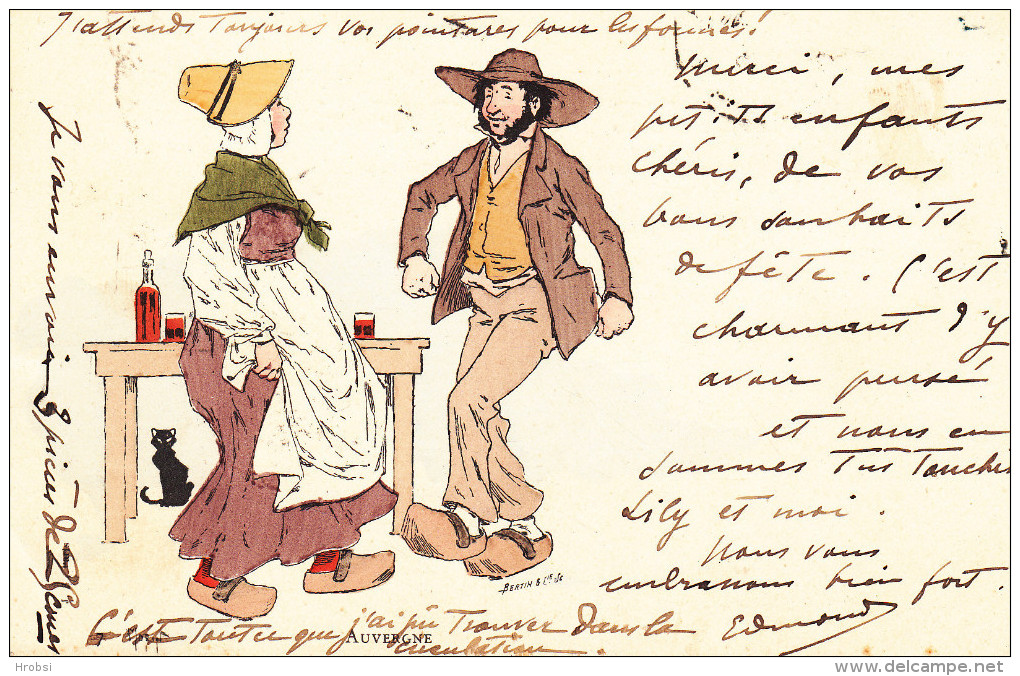 J'attends toujours vos pointures pour les formes.
Merci, mes
petits enfants
chéris, de vos
bons souhaits
de fête. C'est
charmant d'y
avoir pensé
et nous en
sommes très touchés
Lily et moi.
Nous vous
embrassons bien fort.
Edmond
Je vous envoie 8 pièces de
C'est tout ce que j'ai pû trouver dans la
circulation.
AUVERGNE
BERTIN & Cie
Hrobsi
www.delcampe.net